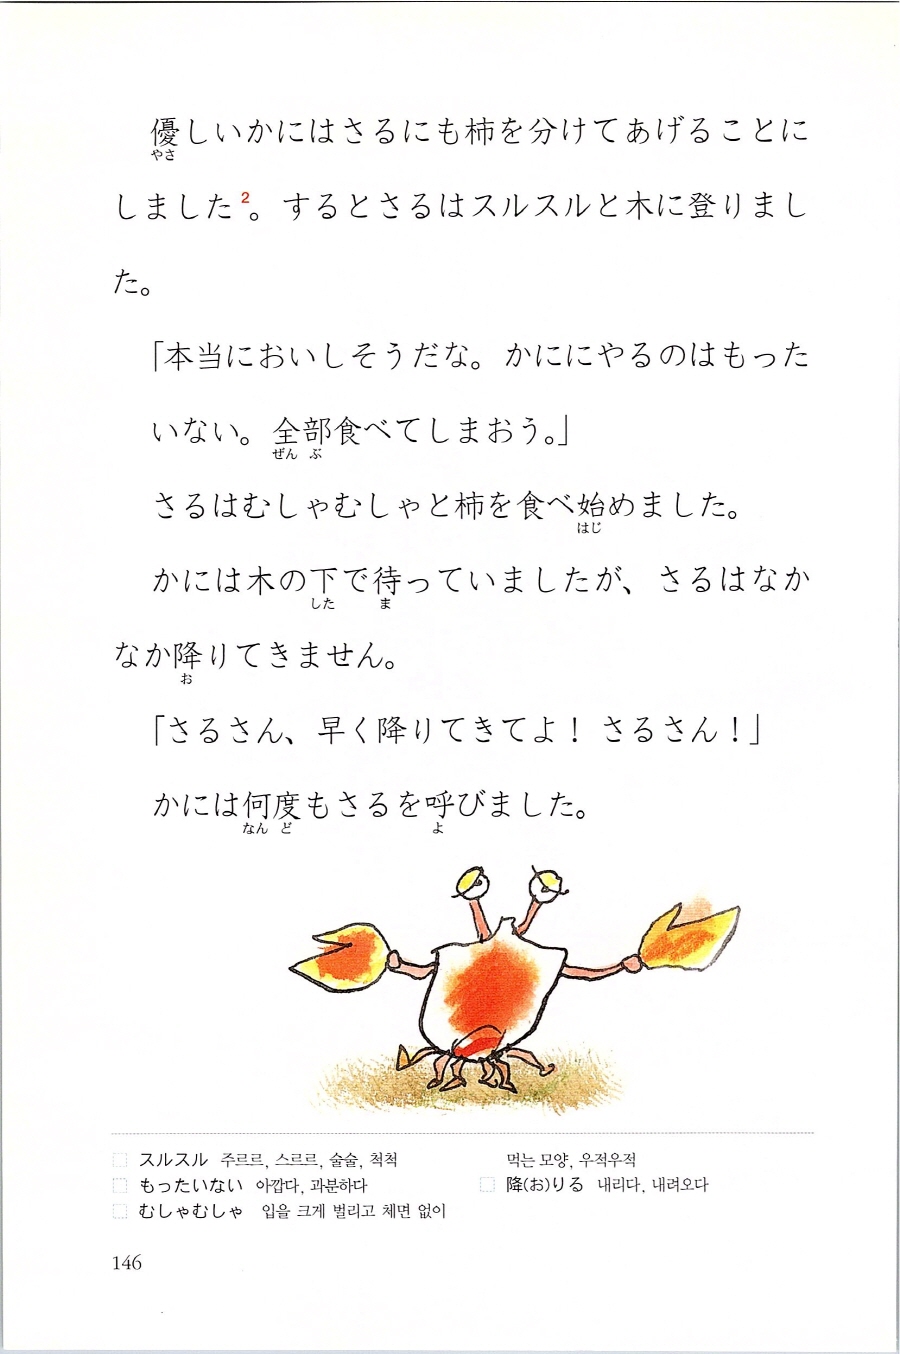 優しいかにはさるにも柿を分けてあげることに
やさ
しました2。するとさるはスルスルと木に登りまし
た。
「本当においしそうだな。かににやるのはもった
いない。全部食べてしまおう。」
ぜん ぶ
さるはむしゃむしゃと柿を食べ始めました。
はじ
かには木の下で待っていましたが、さるはなか
した ま
なか降りてきません。
お
「さるさん、早く降りてきてよ！ さるさん！」
かには何度もさるを呼びました。
なん ど よ
スルスル 주르르, 스르르, 술술, 척척
もったいない 아깝다, 과분하다
むしゃむしゃ 입을 크게 벌리고 체면 없이
먹는 모양, 우적우적
降(お)りる 내리다, 내려오다
146